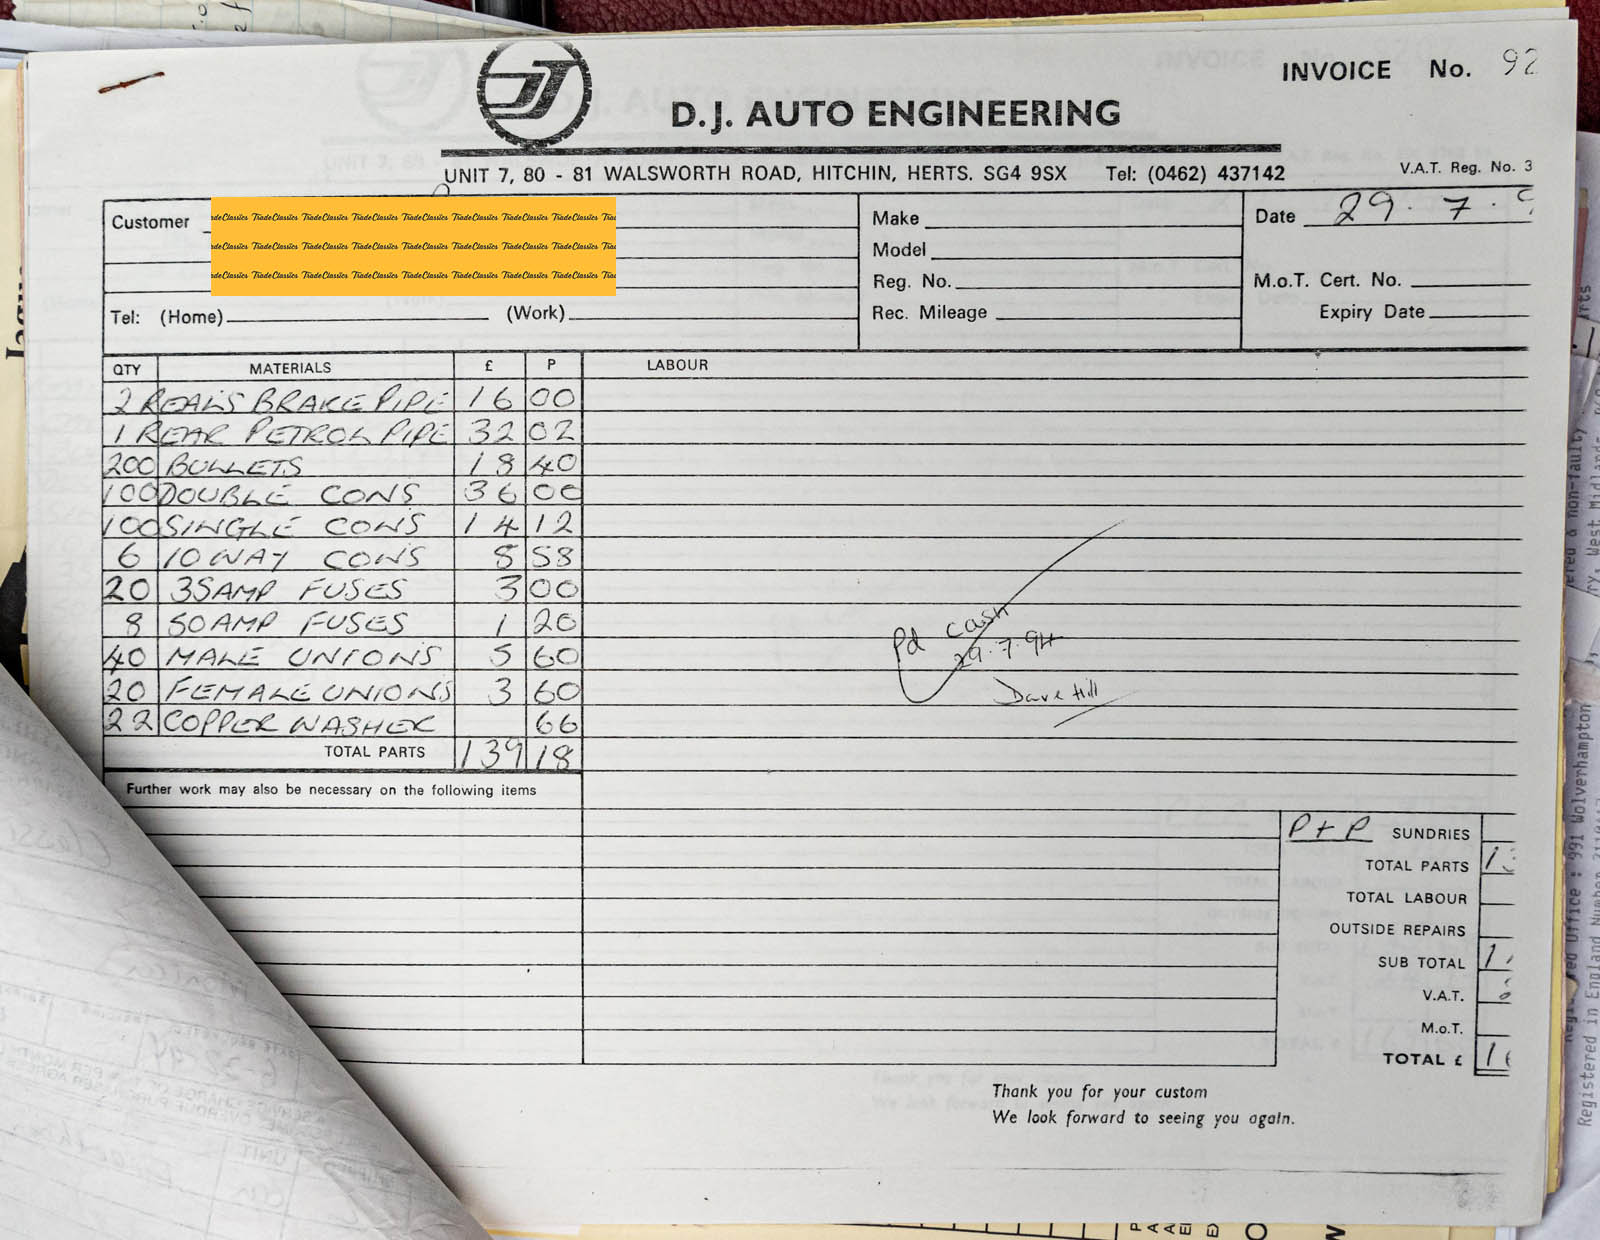 INVOICE No. 92
D.J. AUTO ENGINEERING
UNIT 7, 80 - 81 WALSWORTH ROAD, HITCHIN, HERTS. SG4 9SX Tel: (0462) 437142
V.A.T. Reg. No. 3
Customer
TradeClassics TradeClassics TradeClassics TradeClassics TradeClassics TradeClassics TradeClassics
TradeClassics TradeClassics TradeClassics TradeClassics TradeClassics TradeClassics TradeClassics
TradeClassics TradeClassics TradeClassics TradeClassics TradeClassics TradeClassics TradeClassics
Tel: (Home) (Work)
Make
Model
Reg. No.
Rec. Mileage
Date 29.7.9
M.o.T. Cert. No.
Expiry Date
QTY MATERIALS £ P LABOUR
2 REALS BRAKE PIPE 16 00
1 REAR PETROL PIPE 32 02
200 BULLETS 18 40
100 DOUBLE CONS 36 00
100 SINGLE CONS 14 12
6 10 WAY CONS 8 58
20 35AMP FUSES 3 00
8 50AMP FUSES 1 20
40 MALE UNIONS 5 60
20 FEMALE UNIONS 3 60
22 COPPER WASHER 66
TOTAL PARTS 139 18
Pd cash
29.7.94
Dave Hill
Further work may also be necessary on the following items
P + P SUNDRIES
TOTAL PARTS 13
TOTAL LABOUR
OUTSIDE REPAIRS
SUB TOTAL 1
V.A.T.
M.o.T.
TOTAL £ 16
Thank you for your custom
We look forward to seeing you again.